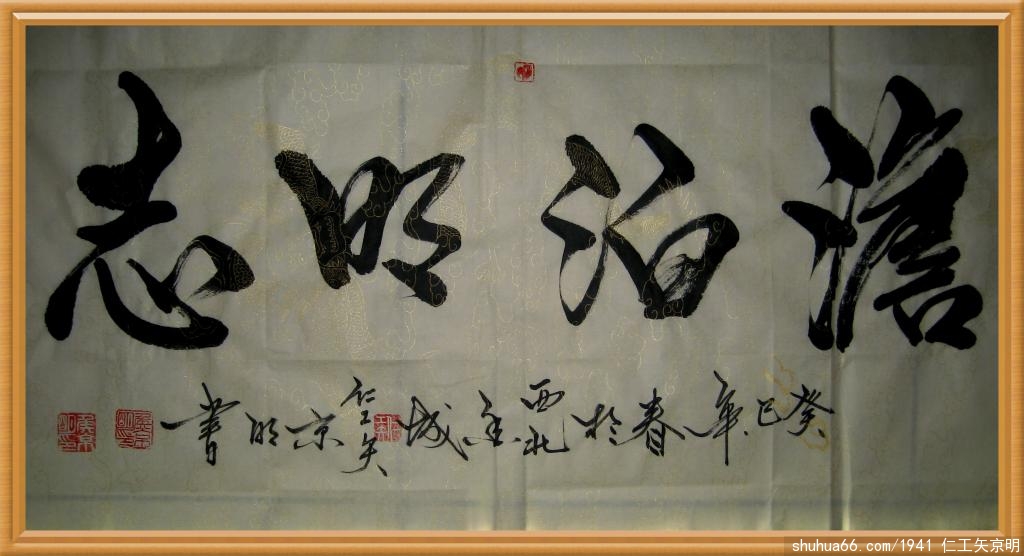 澹泊明志
癸巳年春於西北金城仁工矢京明書
shuhua66.com/1941 仁工矢京明